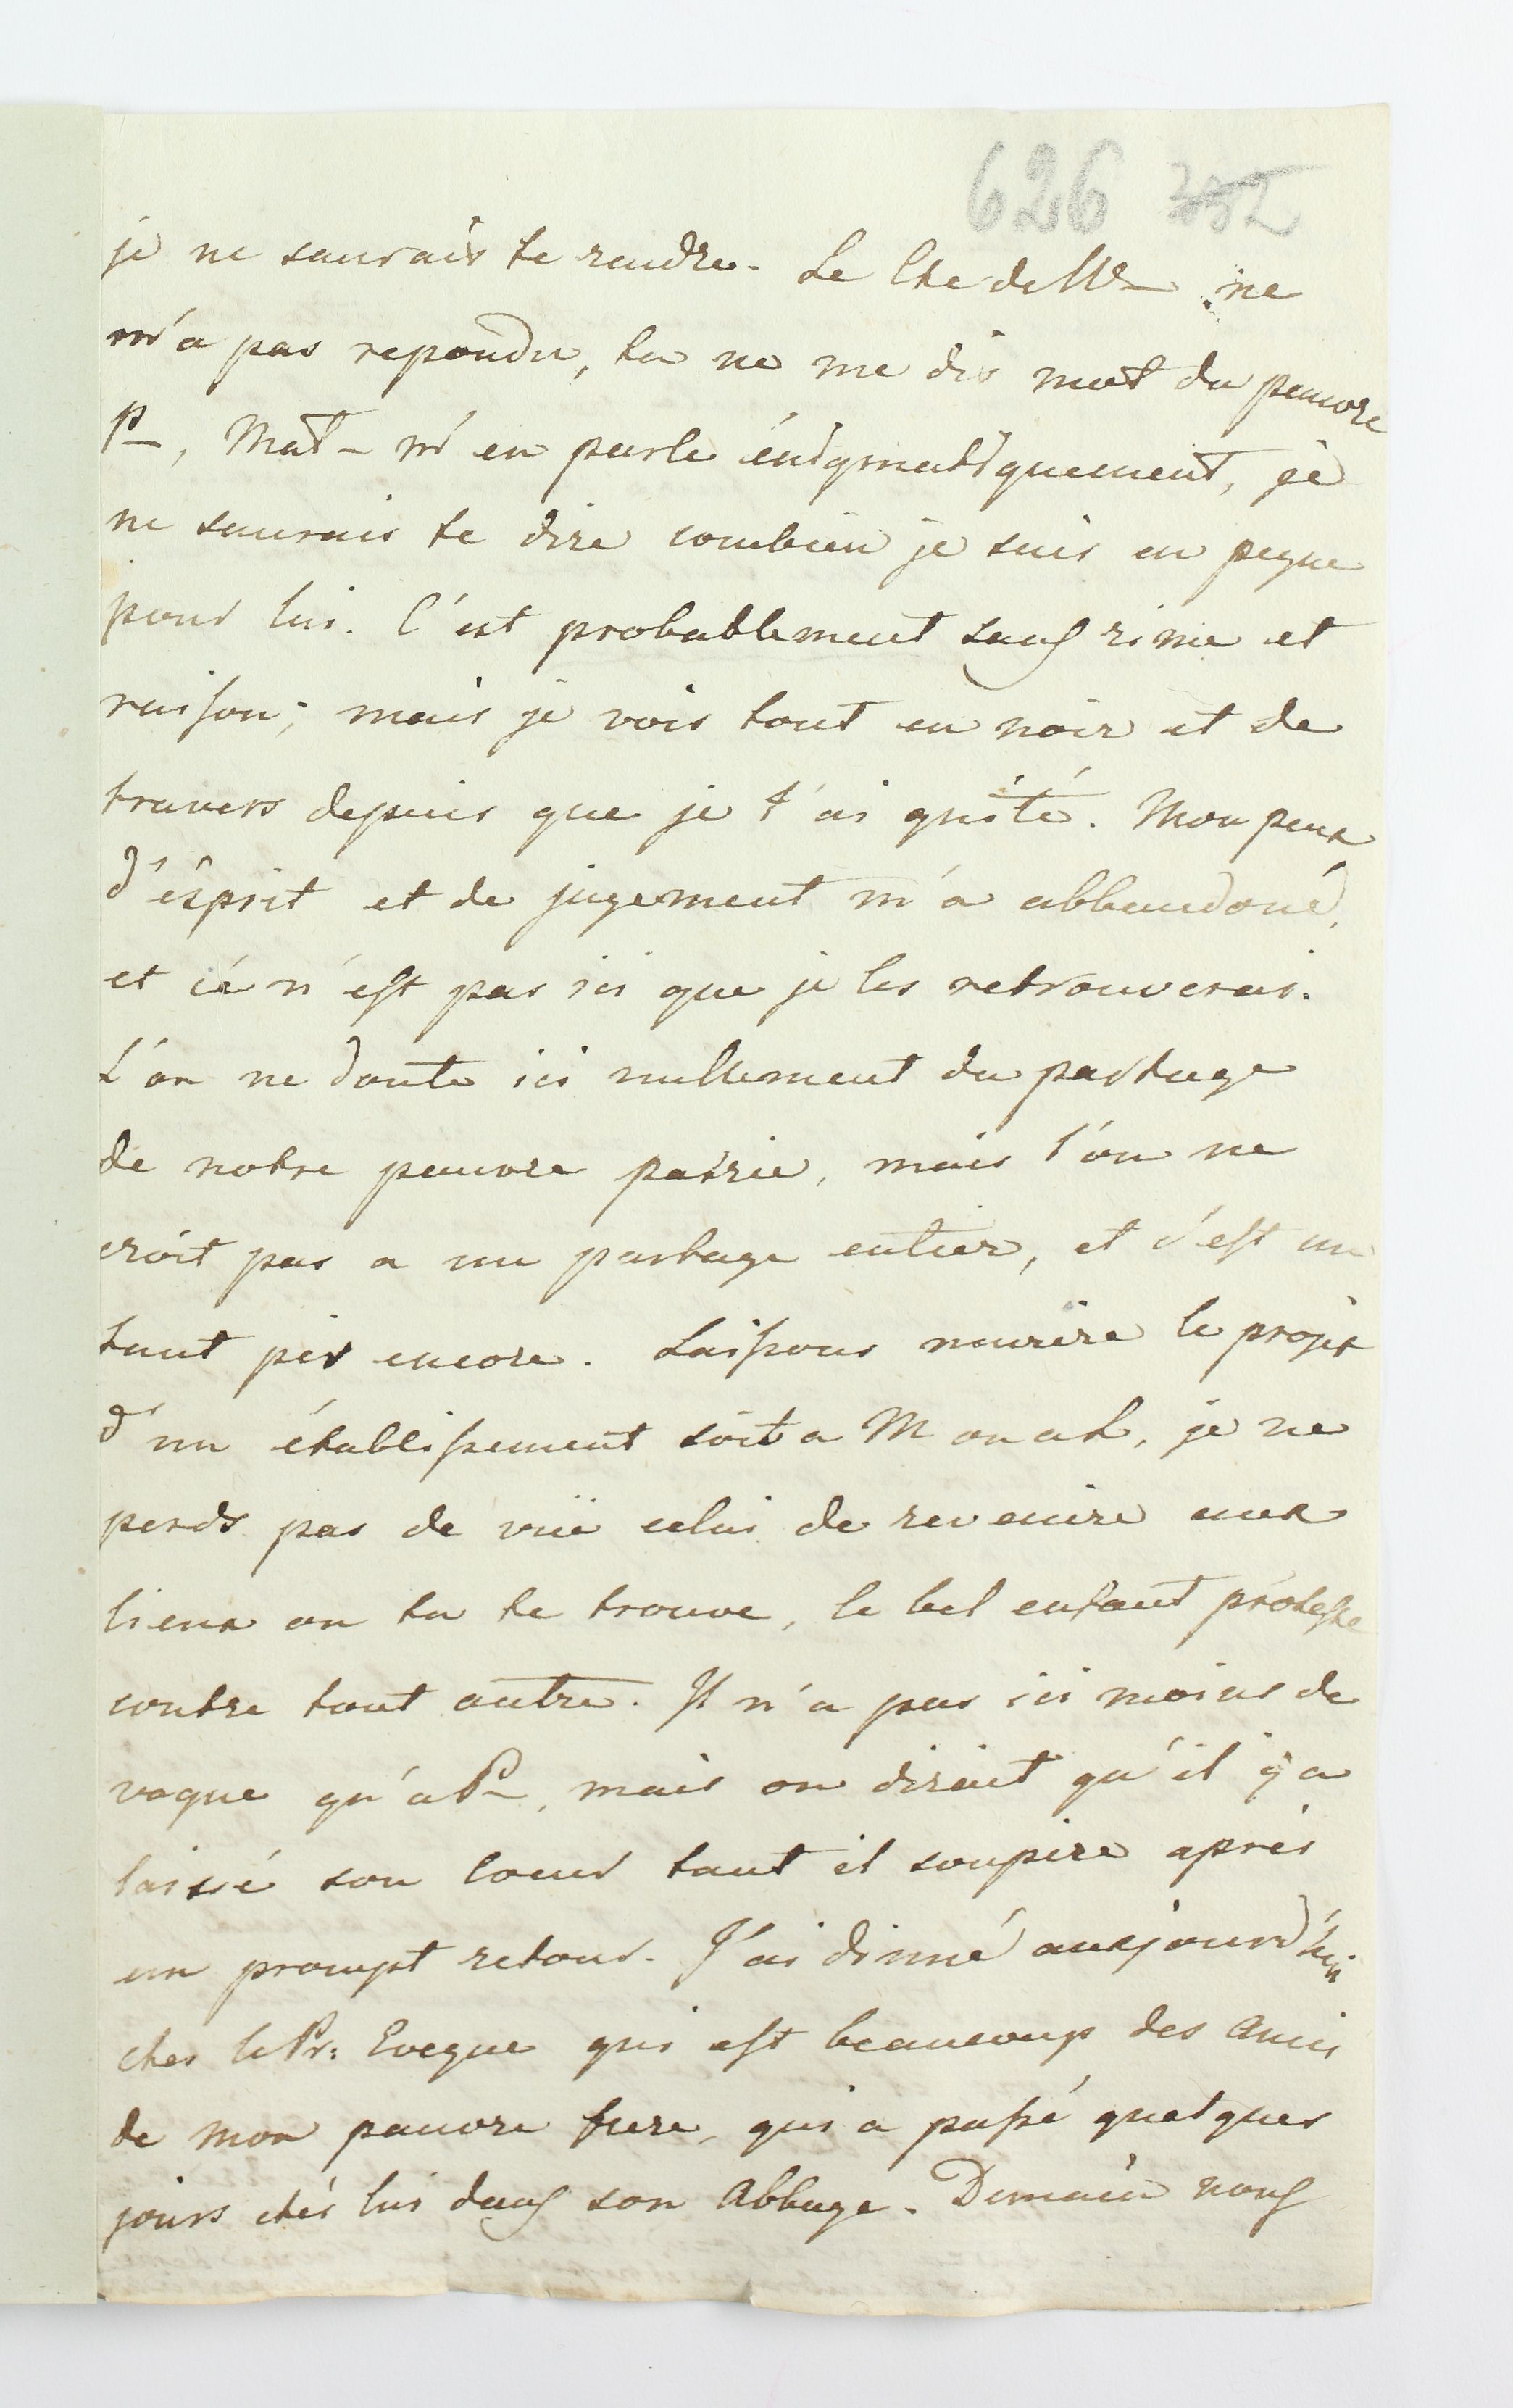 626 352
je ne saurais te rendre. Le Cte de ne
m'a pas repondu, tu ne me dis mot du pauvre
P–, Mat– m'en parle énigmatiquement, je
ne saurais te dire combien je suis en pegne
pour lui. C'est probablement sans rime et
raison; mais je vois tout en noir et de
travers depuis que je t'ai quité. Mon peux
d'ésprit et de jugement m'a abbandoné,
et cé n'est pas ici que je les retrouverai.
L'on ne doute ici nullement du partage
de notre pauvre patrie, mais l'on ne
croit pas a un partage entier, et c'est un
tant pis encore. Laissons mourire le projet
d'un établissement soit a M on ah, je ne
perds pas de vuë celui de revenire aux
lieux ou tu te trouve, le bel enfant proteste
contre tout autre. Il n'a pas ici moins de
vogue qu'a P–, mais on dirait qu'il y a
laissé son coeur tant il soupire après
un prompt retour. J'ai dinné aujourd'hui
ches le Pr: Eveque qui est beaucoup des amis
de mon pauvre frere, qui a passé quelques
jours chés lui dans son Abbaye. Demain nous